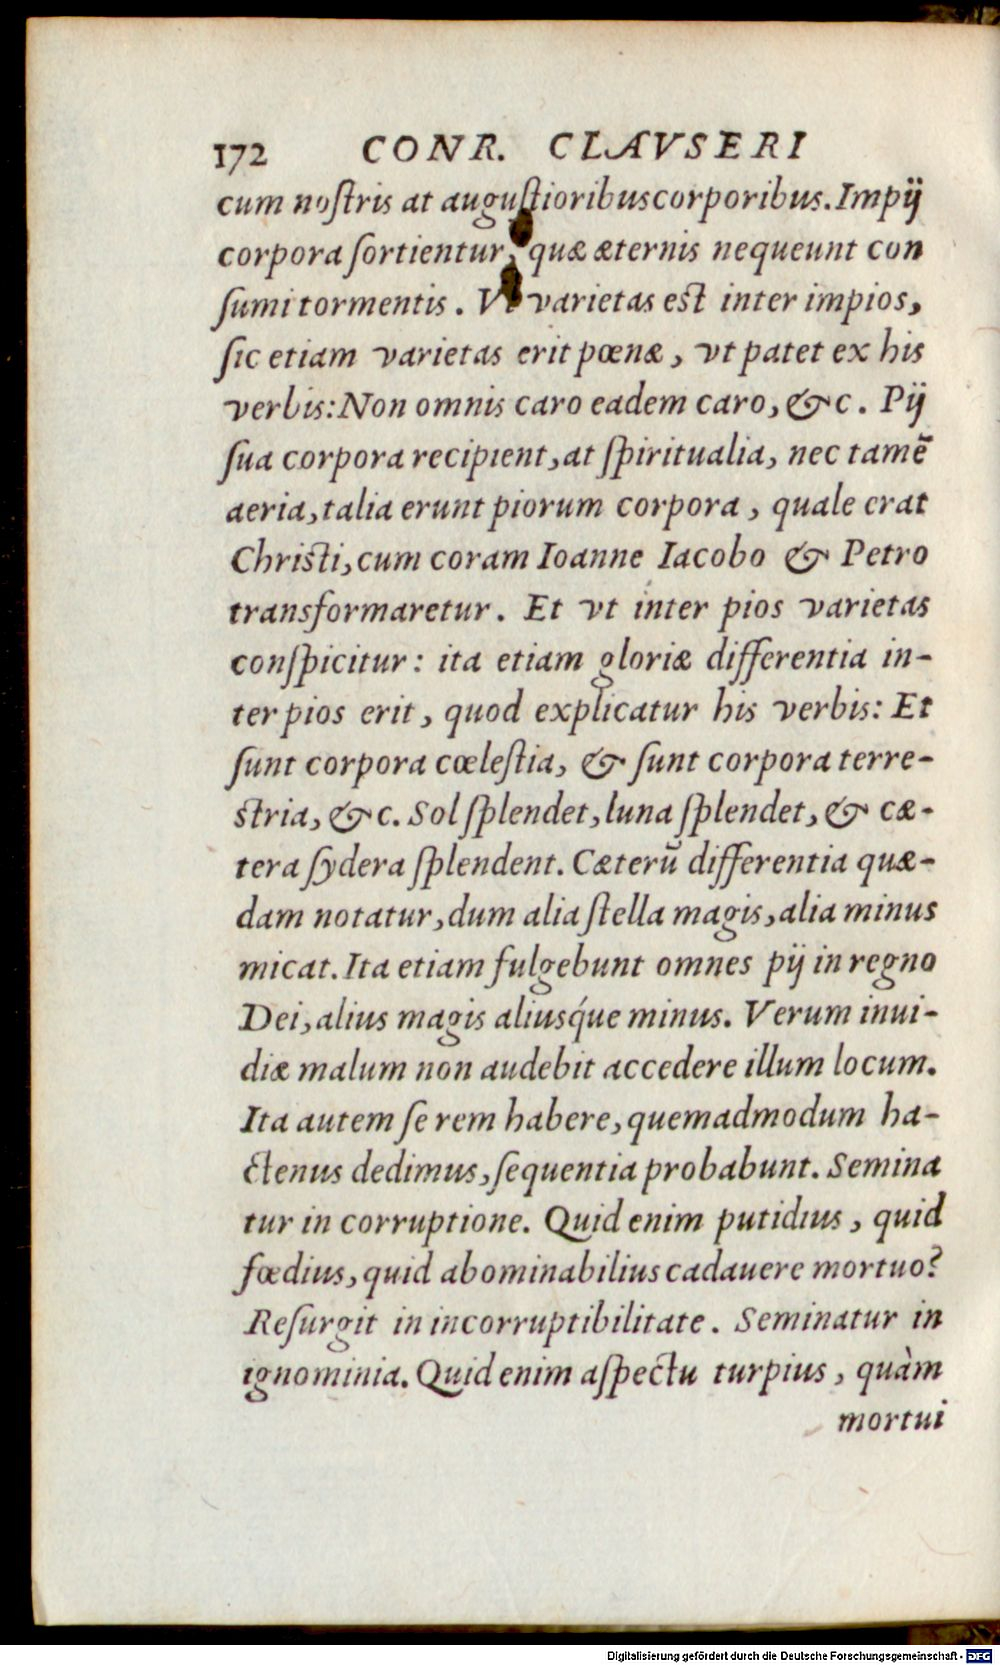 172 CONR. CLAVSERI
cum noſtris at auguſtioribus corporibus. Impij
corpora ſortientur, quæ æternis nequeunt con
ſumi tormentis. Vt varietas est inter impios,
ſic etiam varietas erit pœnæ, vt patet ex his
verbis: Non omnis caro eadem caro, &c. Pij
ſua corpora recipient, at ſpiritualia, nec tamẽ
aeria, talia erunt piorum corpora, quale erat
Christi, cum coram Ioanne Iacobo & Petro
transformaretur. Et vt inter pios varietas
conſpicitur: ita etiam gloriæ differentia in-
ter pios erit, quod explicatur his verbis: Et
ſunt corpora cœleſtia, & ſunt corpora terre-
stria, &c. Sol ſplendet, luna ſplendet, & cæ-
tera ſydera ſplendent. Cæterũ differentia quæ-
dam notatur, dum alia ſtella magis, alia minus
micat. Ita etiam fulgebunt omnes pij in regno
Dei, alius magis aliusq́ue minus. Verum inui-
diæ malum non audebit accedere illum locum.
Ita autem ſe rem habere, quemadmodum ha-
ctenus dedimus, ſequentia probabunt. Semina
tur in corruptione. Quid enim putidius, quid
fœdius, quid abominabilius cadauere mortuo?
Reſurgit in incorruptibilitate. Seminatur in
ignominia. Quid enim aſpectu turpius, quàm
mortui
Digitalisierung gefördert durch die Deutsche Forschungsgemeinschaft - DFG